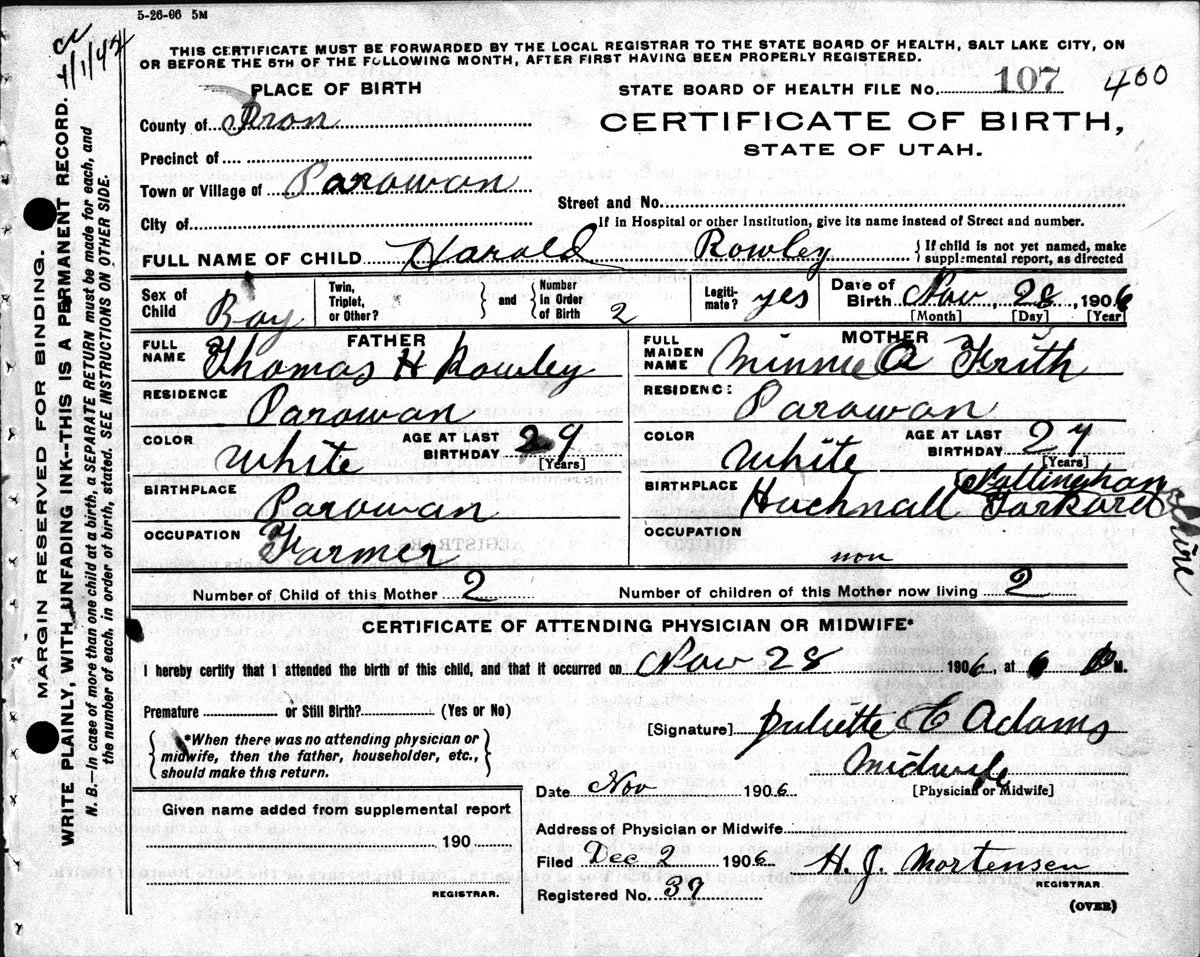 5-26-06 5M
THIS CERTIFICATE MUST BE FORWARDED BY THE LOCAL REGISTRAR TO THE STATE BOARD OF HEALTH, SALT LAKE CITY, ON
OR BEFORE THE 5TH OF THE FOLLOWING MONTH, AFTER FIRST HAVING BEEN PROPERLY REGISTERED.
4/1/42
PLACE OF BIRTH
STATE BOARD OF HEALTH FILE NO. 107 400
County of Iron
CERTIFICATE OF BIRTH,
STATE OF UTAH.
Precinct of
Town or Village of Parowan
Street and No.
City of
If in Hospital or other Institution, give its name instead of Street and number.
FULL NAME OF CHILD Harold Rowley {If child is not yet named, make supplemental report, as directed
Sex of Child Boy Twin, Triplet, or Other? } and { Number in Order of Birth 2 Legiti-mate? yes Date of Birth Nov 28, 1906
[Month] [Day] [Year]
FATHER MOTHER
FULL NAME Thomas H Rowley FULL MAIDEN NAME Minnie A Frith
RESIDENCE Parowan RESIDENC: Parowan
COLOR White AGE AT LAST BIRTHDAY 29 [Years] COLOR White AGE AT LAST BIRTHDAY 27 [Years]
BIRTHPLACE Parowan BIRTHPLACE Huchnall Torkard
OCCUPATION Farmer OCCUPATION non
Number of Child of this Mother 2 Number of children of this Mother now living 2
CERTIFICATE OF ATTENDING PHYSICIAN OR MIDWIFE*
I hereby certify that I attended the birth of this child, and that it occurred on Nov 28 1906, at 6 P M.
Premature or Still Birth? (Yes or No)
[Signature] Juliette E Adams
{*When there was no attending physician or
midwife, then the father, householder, etc.,
should make this return.}
Midwife
[Physician or Midwife]
Date Nov 1906
Given name added from supplemental report
190
REGISTRAR.
Address of Physician or Midwife
Filed Dec 2 1906 H. J. Mortensen
REGISTRAR.
Registered No. 37
(OVER)
MARGIN RESERVED FOR BINDING.
WRITE PLAINLY, WITH UNFADING INK--THIS IS A PERMANENT RECORD.
N. B.--In case of more than one child at a birth, a SEPARATE RETURN must be made for each, and
the number of each, in order of birth, stated. SEE INSTRUCTIONS ON OTHER SIDE.